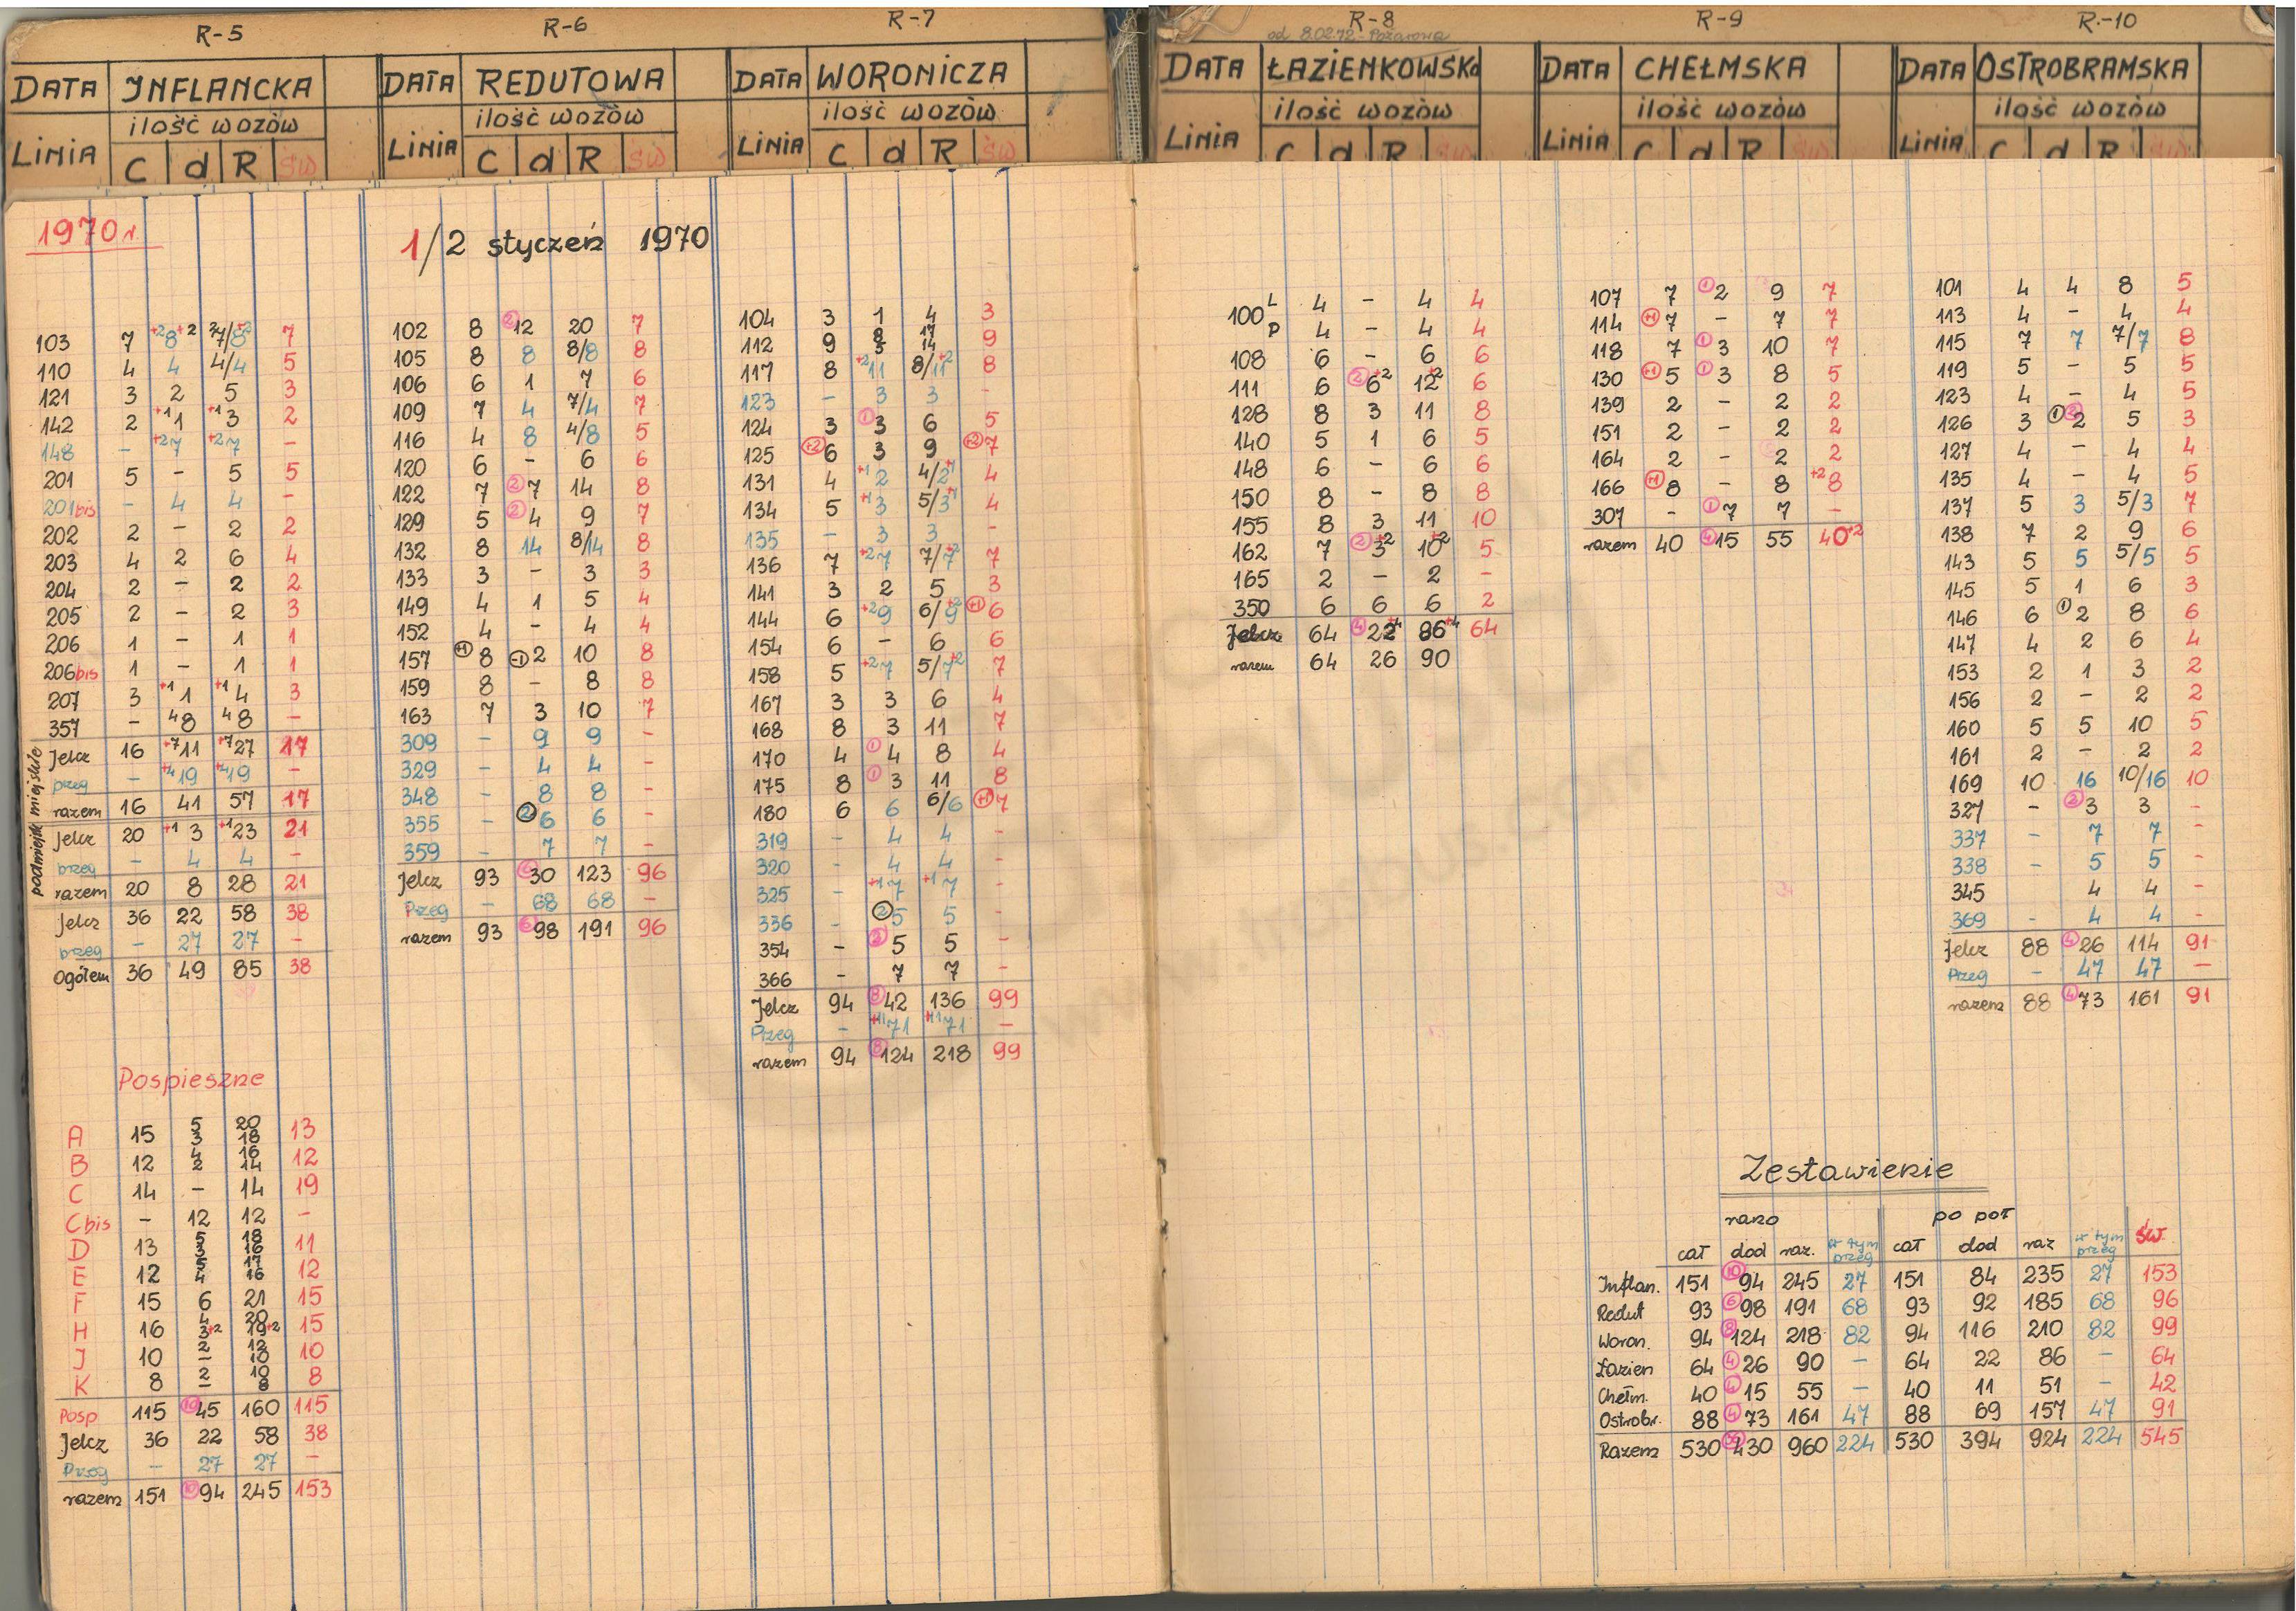 R-5
R-6
R-7
R-8
od 8.02.72 - Pożarowa
R-9
R-10
DATA INFLANCKA
LINIA ilość wozów
C d R św
DATA REDUTOWA
LINIA ilość wozów
C d R św
DATA WORONICZA
LINIA ilość wozów
C d R św
DATA ŁAZIENKOWSKA
LINIA ilość wozów
C d R św
DATA CHEŁMSKA
LINIA ilość wozów
C d R św
DATA OSTROBRAMSKA
LINIA ilość wozów
C d R św
1970 r.
1/2 styczeń 1970
103 7 +2 8 +2 7/8 +2 7
110 4 4 4/4 5
121 3 2 5 3
142 2 +1 1 +1 3 2
148 - +2 7 +2 7 -
201 5 - 5 5
201bis - 4 4 -
202 2 - 2 2
203 4 2 6 4
204 2 - 2 2
205 2 - 2 3
206 1 - 1 1
206bis 1 - 1 1
207 3 +1 1 +1 4 3
357 - 4 8 4 8 -
podmiejsk miejskie
Jelcz 16 +7 11 +7 27 17
przeg - +4 19 +4 19 -
razem 16 41 57 17
Jelcz 20 +1 3 +1 23 21
przeg - 4 4 -
razem 20 8 28 21
Jelcz 36 22 58 38
przeg - 27 27 -
Ogółem 36 49 85 38
Pospieszne
A 15 5 3 20 18 13
B 12 4 2 16 14 12
C 14 - 14 19
C bis - 12 12 -
D 13 5 3 18 16 11
E 12 5 4 17 16 12
F 15 6 21 15
H 16 4 3+2 20 19+2 15
J 10 2 - 12 10 10
K 8 2 - 10 8 8
Posp 115 10 45 160 115
Jelcz 36 22 58 38
Przeg - 27 27 -
razem 151 10 94 245 153
102 8 2 12 20 7
105 8 8 8/8 8
106 6 1 7 6
109 7 4 7/4 7
116 4 8 4/8 5
120 6 - 6 6
122 7 2 7 14 8
129 5 2 4 9 7
132 8 14 8/14 8
133 3 - 3 3
149 4 1 5 4
152 4 - 4 4
157 +1 8 -1 2 10 8
159 8 - 8 8
163 7 3 10 7
309 - 9 9 -
329 - 4 4 -
348 - 8 8 -
355 - 2 6 6 -
359 - 7 7 -
Jelcz 93 6 30 123 96
Przeg - 68 68 -
razem 93 6 98 191 96
104 3 1 4 3
112 9 8 5 17 14 9
117 8 +2 11 8/11 +2 8
123 - 3 3 -
124 3 1 3 6 5
125 +2 6 3 9 +2 7
131 4 +1 2 4/2 +1 4
134 5 +1 3 5/3 +1 4
135 - 3 3 -
136 7 +2 7 7/7 +2 7
141 3 2 5 3
144 6 +2 9 6/9 +2 +1 6
154 6 - 6 6
158 5 +2 7 5/7 +2 7
167 3 3 6 4
168 8 3 11 7
170 4 1 4 8 4
175 8 1 3 11 8
180 6 6 6/6 +1 7
319 - 4 4 -
320 - 4 4 -
325 - +1 7 +1 7 -
336 - 2 5 5 -
354 - 2 5 5 -
366 - 7 7 -
Jelcz 94 8 42 136 99
Przeg - +11 71 +11 71 -
razem 94 8 124 218 99
100 L 4 - 4 4
P 4 - 4 4
108 6 - 6 6
111 6 2 6 +2 12 +2 6
128 8 3 11 8
140 5 1 6 5
148 6 - 6 6
150 8 - 8 8
155 8 3 11 10
162 7 2 3 +2 10 +2 5
165 2 - 2 -
350 6 6 6 2
Jelcz 64 4 22 +4 86 +4 64
razem 64 26 90
107 7 1 2 9 7
114 +1 7 - 7 7
118 7 1 3 10 7
130 +1 5 1 3 8 5
139 2 - 2 2
151 2 - 2 2
164 2 - 2 2
166 +1 8 - 8 +2 8
307 - 1 7 7 -
razem 40 4 15 55 40 +2
101 4 4 8 5
113 4 - 4 4
115 7 7 7/7 8
119 5 - 5 5
123 4 - 4 5
126 3 1 2 2 5 3
127 4 - 4 4
135 4 - 4 5
137 5 3 5/3 7
138 7 2 9 6
143 5 5 5/5 5
145 5 1 6 3
146 6 1 2 8 6
147 4 2 6 4
153 2 1 3 2
156 2 - 2 2
160 5 5 10 5
161 2 - 2 2
169 10 16 10/16 10
327 - 2 3 3 -
337 - 7 7 -
338 - 5 5 -
345 4 4 -
369 - 4 4 -
Jelcz 88 4 26 114 91
Przeg - 47 47 -
razem 88 4 73 161 91
Zestawienie
rano po poł
cał dod raz. w tym przeg cał dod raz w tym przeg św.
Inflan. 151 10 94 245 27 151 84 235 27 153
Redut 93 6 98 191 68 93 92 185 68 96
Woron. 94 8 124 218 82 94 116 210 82 99
Łazien 64 4 26 90 - 64 22 86 - 64
Chełm. 40 4 15 55 - 40 11 51 - 42
Ostrobr. 88 4 73 161 47 88 69 157 47 91
Razem 530 36 430 960 224 530 394 924 224 545